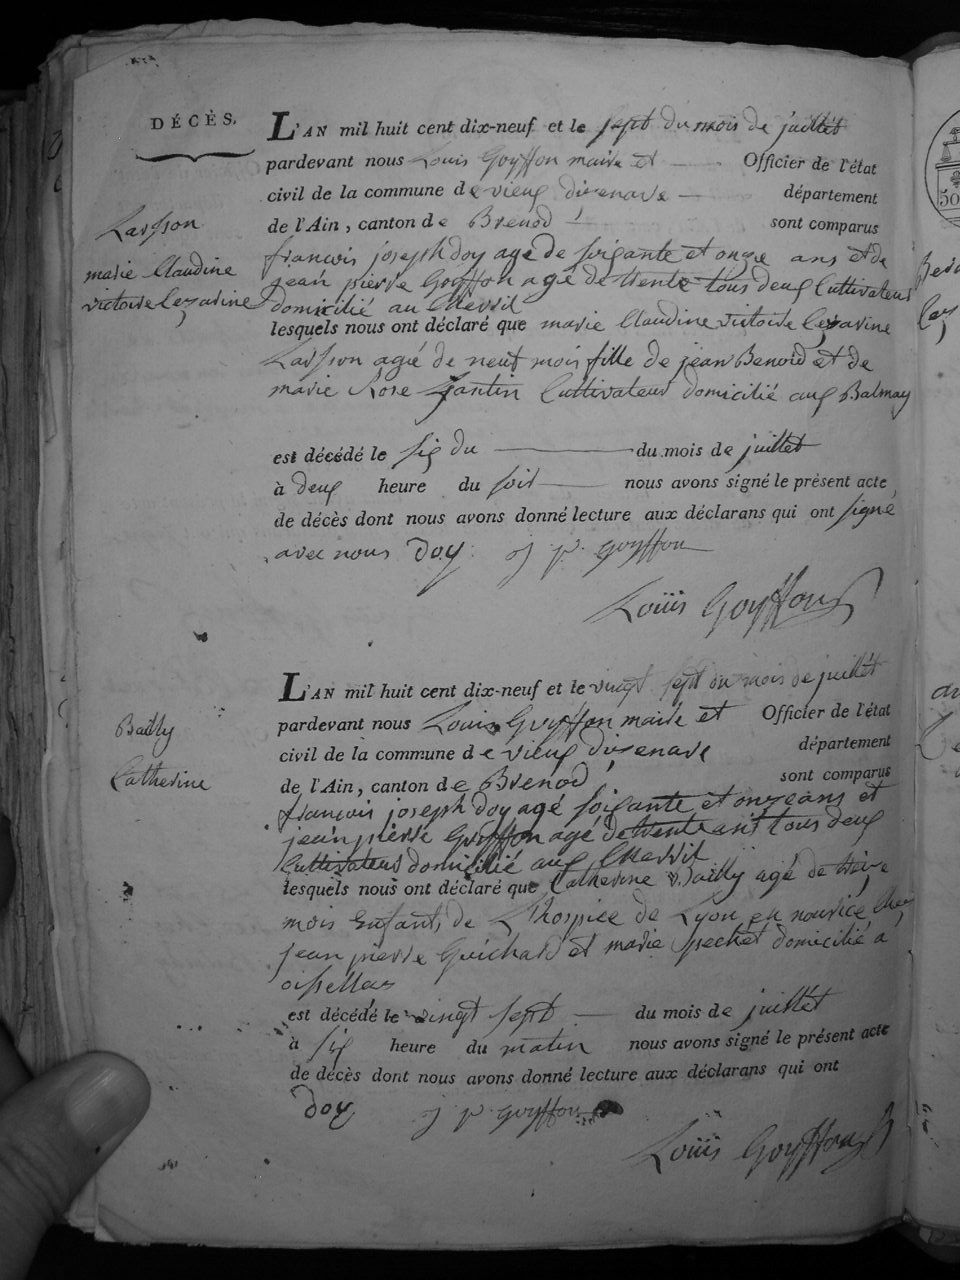 DÉCÈS.
L'AN mil huit cent dix-neuf et le sept du mois de juillet
pardevant nous Louis Goyffon maire et Officier de l'état
civil de la commune de vieux dizenave département
de l'Ain, canton de Brenod sont comparus
Larsson
marie Claudine
victoire Cezarine
francois joseph doy age de soixante et onze ans et de
jean pierre Goyffon agé de trente tous deux Cultivateurs
domicilié au
lesquels nous ont déclaré que marie Claudine victoire Cezarine
Larsson agé de neuf mois fille de jean Benoid et de
marie Rose Jantin Cultivateurs domicilié aux Balmay
est décédé le six du du mois de juillet
à deux heure du soir nous avons signé le présent acte
de décès dont nous avons donné lecture aux déclarans qui ont signé
avec nous Doy j p goyffon
Louis Goyffon
L'AN mil huit cent dix-neuf et le vingt sept du mois de juillet
pardevant nous Louis Goyffon maire et Officier de l'état
civil de la commune de vieux dizenave département
de l'Ain, canton de Brenod sont comparus
Bailly
Catherine
francois joseph doy agé soixante et onze ans et
jean pierre Goyffon agé de trente ans tous deux
Cultivateurs domicilié aux
lesquels nous ont déclaré que Catherine Bailly agé de treize
mois Enfant de L'hospice de Lyon en nourice chez
jean pierre Guichard et marie pechet domicilié a
oissellas
est décédé le vingt sept du mois de juillet
à six heure du matin nous avons signé le présent acte
de décès dont nous avons donné lecture aux déclarans qui ont
Doy j p goyffon
Louis Goyffon
50